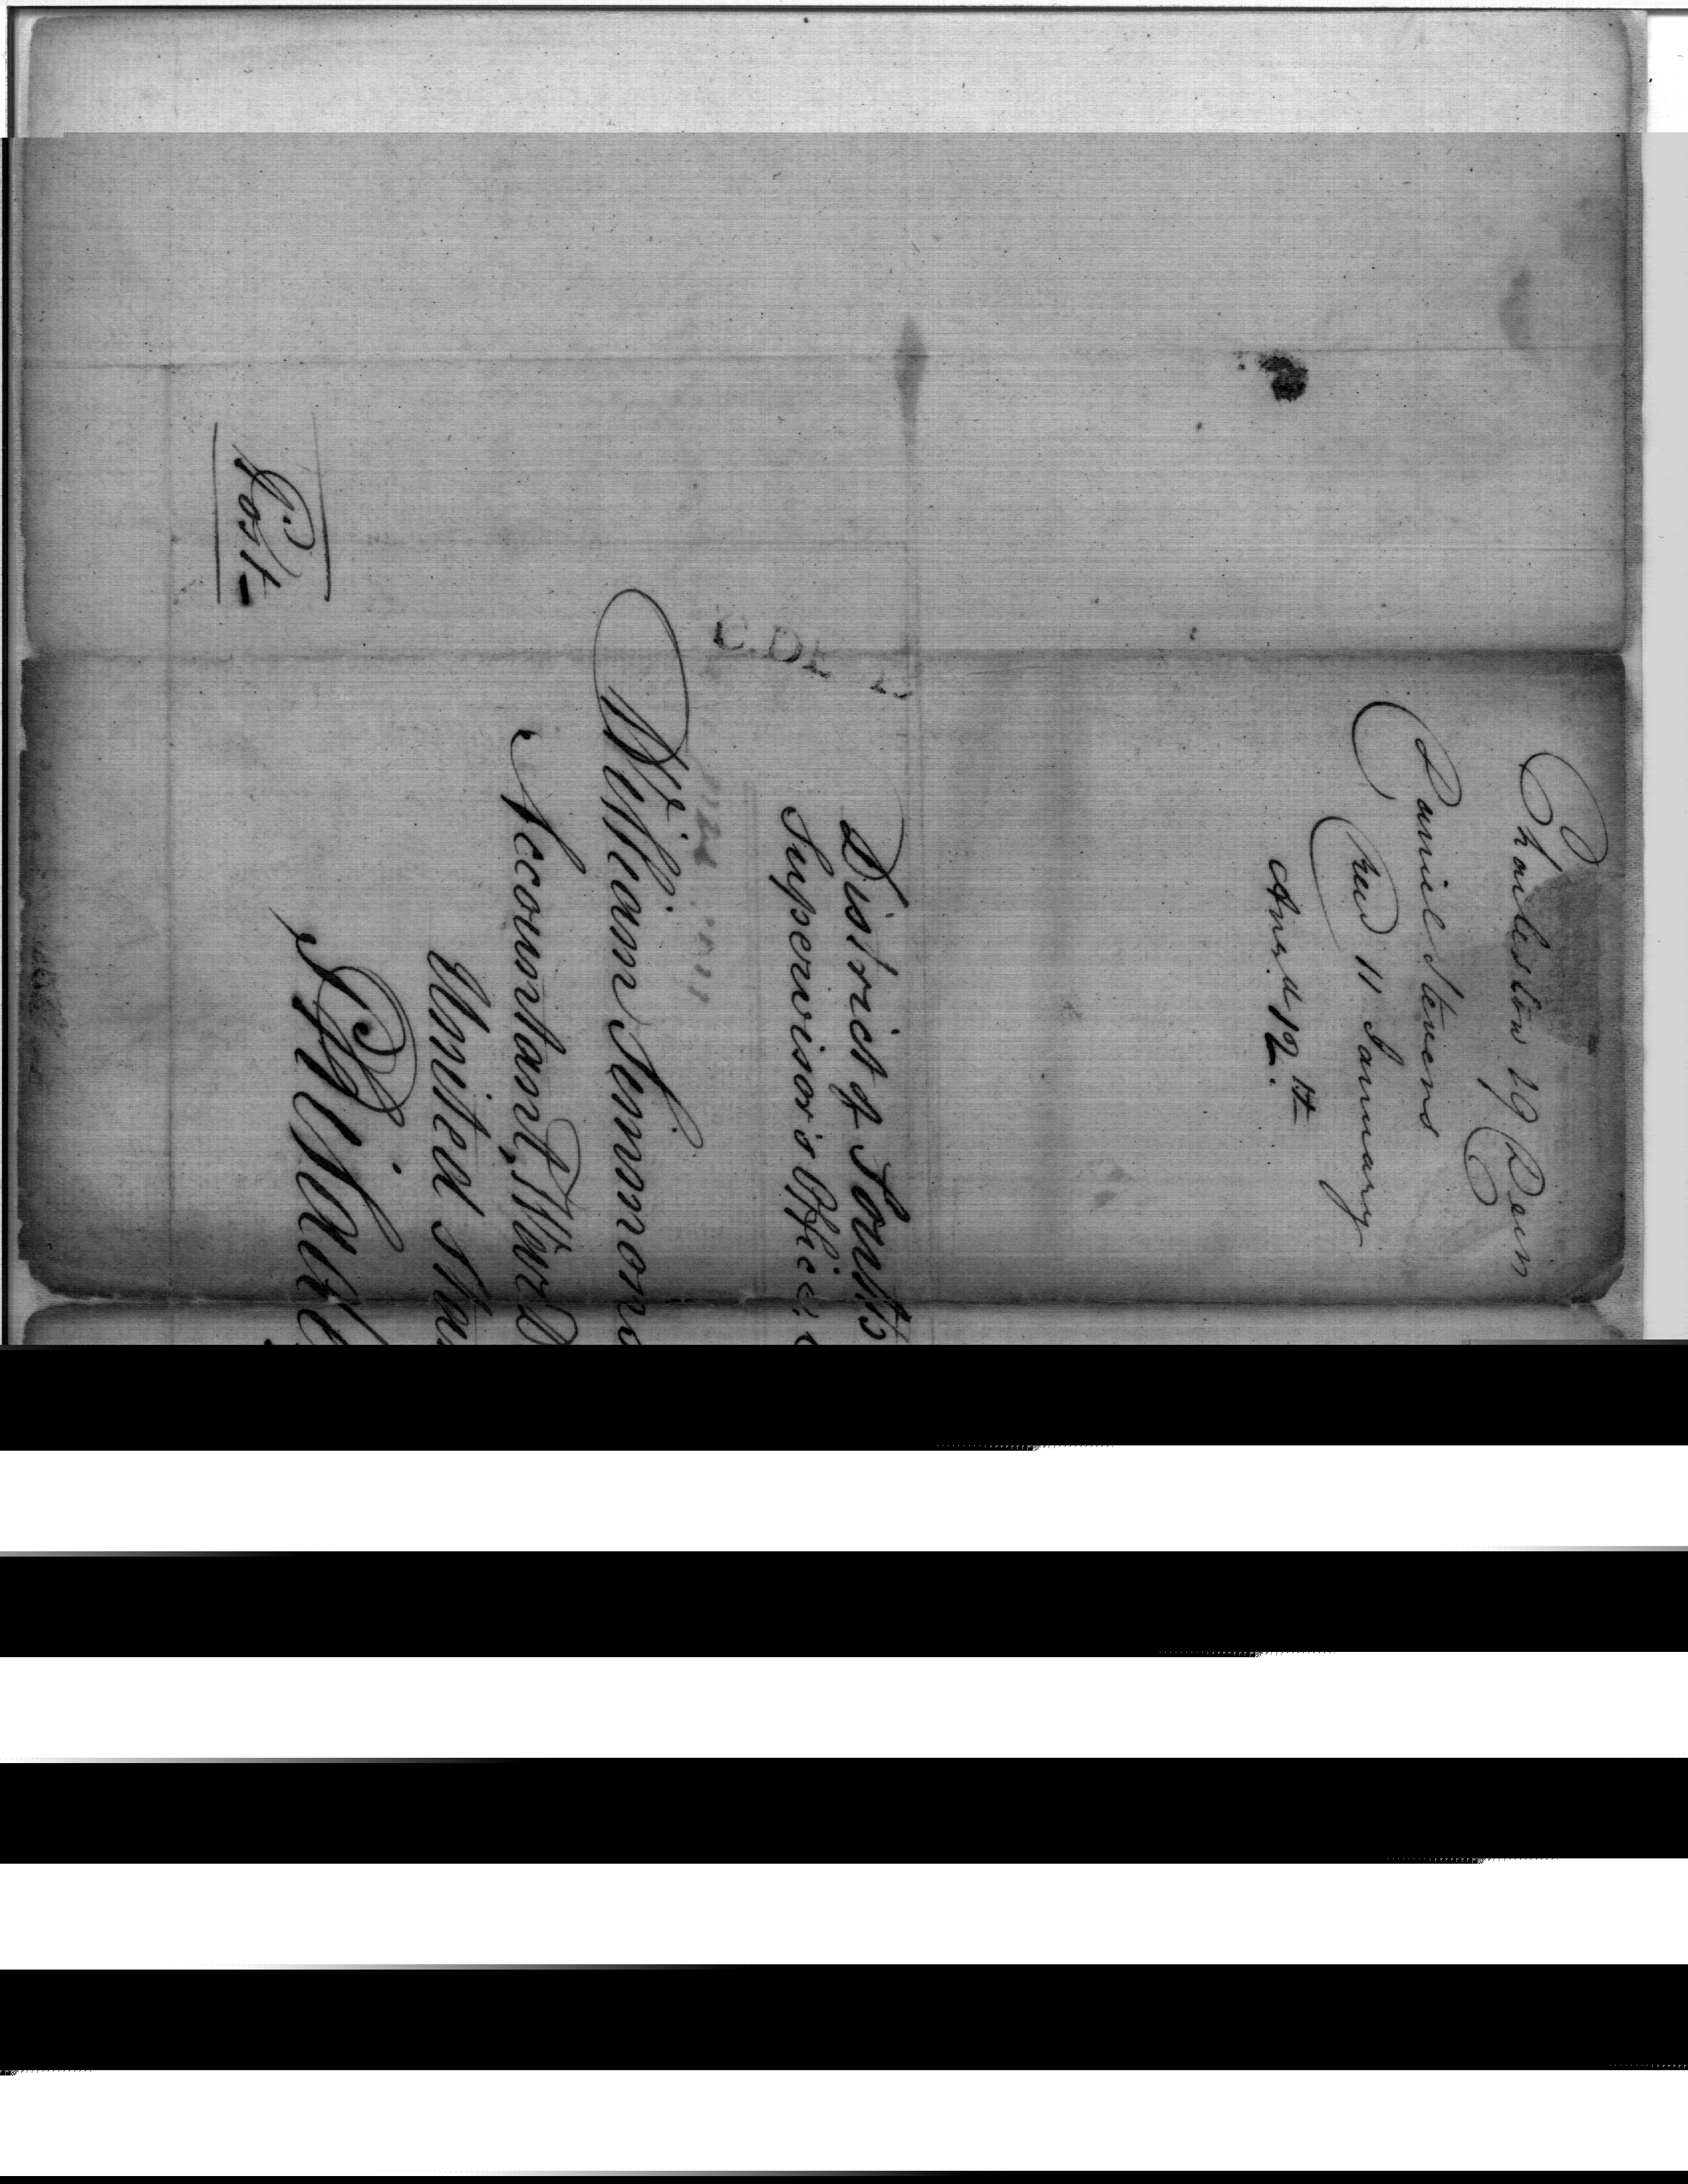 Charleston 19 Decem
Daniel Stevens
Recd 11 January
Ansd 12th.
District of South
Supervisor's Office,
C.DE
William Simmons
Accountant, War D
United Sta
Philadel
Post